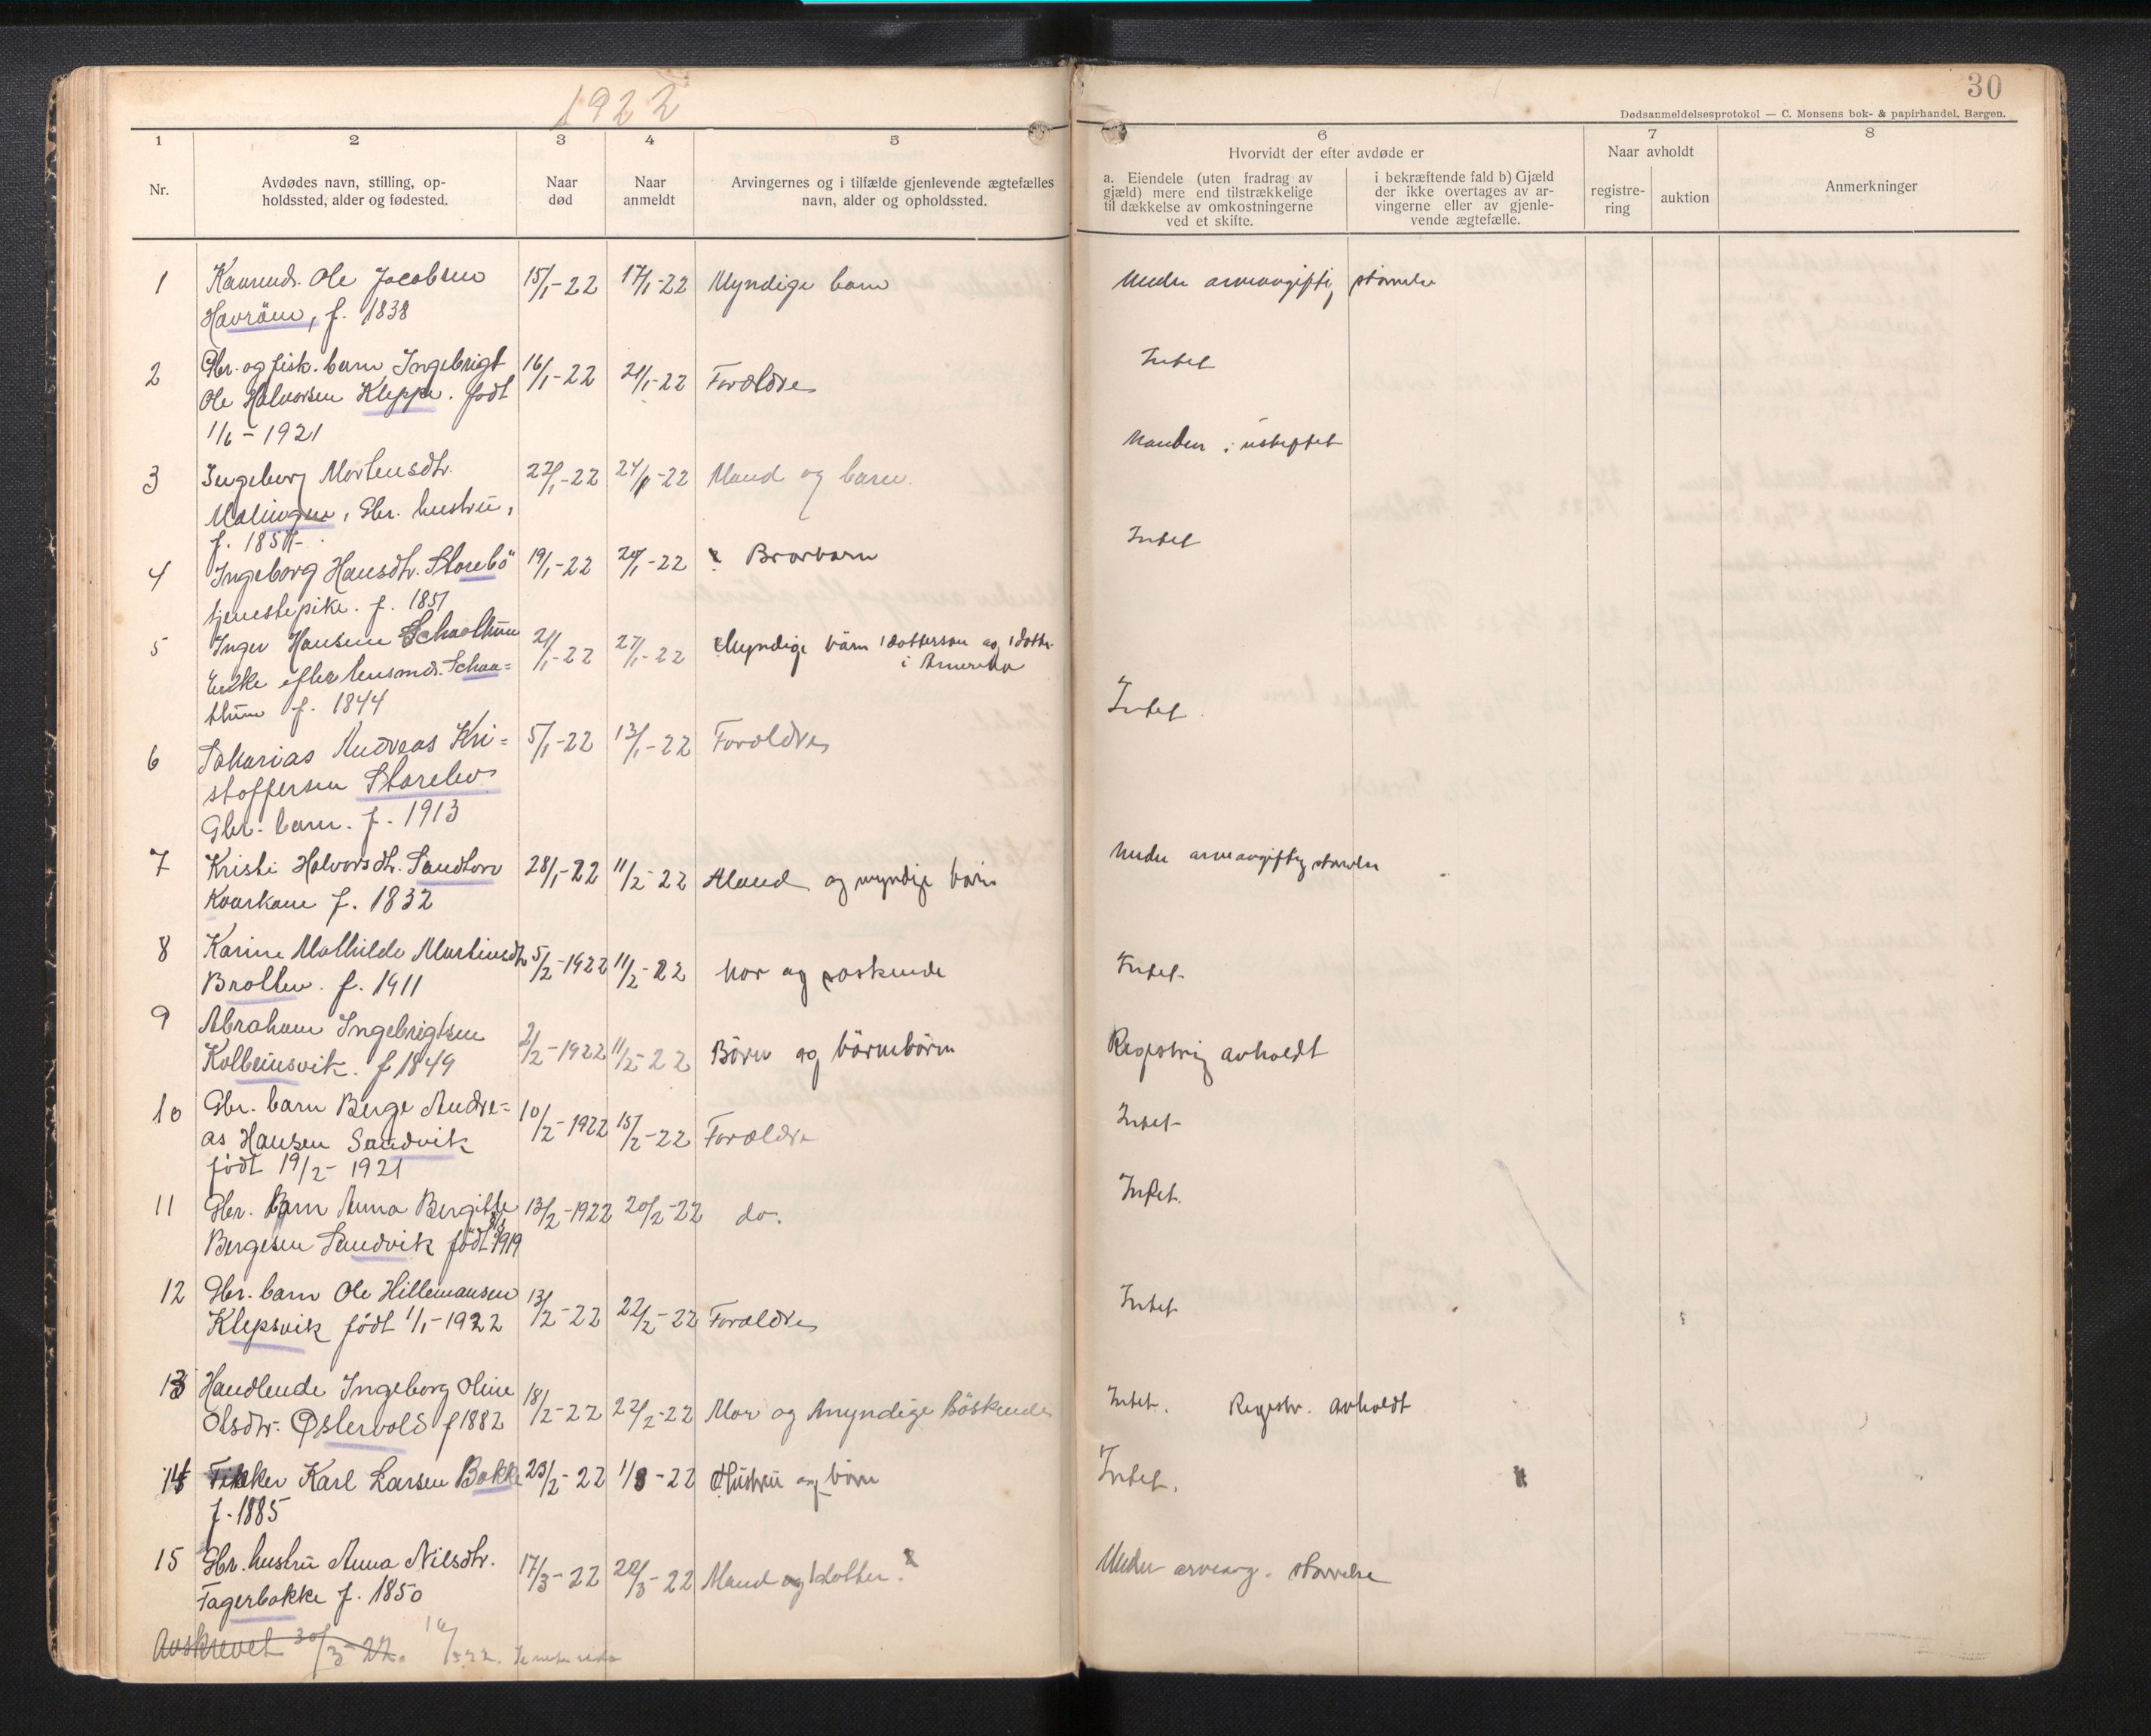 1922
30
Dødsanmeldelsesprotokol — C. Monsens bok- & papirhandel, Bergen.
1
2
3
4
5
6
7
8
Nr.
Avdødes navn, stilling, op-
holdssted, alder og fødested.
Naar
død
Naar
anmeldt
Arvingernes og i tilfælde gjenlevende ægtefælles
navn, alder og opholdssted.
Hvorvidt der efter avdøde er
a. Eiendele (uten fradrag av
gjæld) mere end tilstrækkelige
til dækkelse av omkostningerne
ved et skifte.
i bekræftende fald b) Gjæld
der ikke overtages av ar-
vingerne eller av gjenle-
vende ægtefælle.
Naar avholdt
registre-
ring
auktion
Anmerkninger
1 Kaarmd. Ole Jacobsen 15/1-22 17/1-22 Myndige barn Under arveavgiftig størrelse
Havröen, f. 1838
2 Gbr. og fisk. barn Ingebrigt 16/1-22 21/1-22 Forældre Intet
Ole Halvorsen Kleppe. født
1/6-1921
3 Ingeborg Mortensdtr. 22/1-22 24/1-22 Mand og barn. Manden i uskiftet
Malingen, Gbr. hustru,
f. 185
4 Ingeborg Hansdtr. Storebö 19/1-22 20/1-22 Brorbarn Intet
tjenestepike. f. 1851
5 Inger Hansine Schaathun 21/1-22 27/1-22 Myndige børn 1 dottersøn og 1 dotter
i Amerika Intet
Enke efter husmd. Schaa=
thun f. 1844
6 Sakarias Andreas Kri= 5/1-22 13/1-22 Forældre
stoffersen Storebø
Gbr. barn. f. 1913
7 Kristi Halvorsdtr. Sandtorv 28/1-22 11/2-22 Mand og myndige børn Under arveavgiftig størrelse
Kaarkone f. 1832
8 Karine Mathilde Martinsdtr 5/2-1922 11/2-22 Mor og søskende Intet
Bratten. f. 1911
9 Abraham Ingebrigtsen 2/2-1922 11/2-22 Börn og börnebörn Registrering avholdt
Kolbeinsvik. f 1849
10 Gbr. barn Berge Andre= 10/2-1922 15/2-22 Forældre Intet
as Hansen Sandvik
født 19/2-1921
11 Gbr. Barn Anna Bergitte 13/2-1922 20/2-22 do. Intet.
Bergesen Sandvik født 1919
12 Gbr. barn Ole Hillemansen 13/2-22 22/2-22 Forældre Intet
Klepsvik født 1/1-1922
13 Handlende Ingeborg Oline 18/2-22 22/2-22 Mor og myndige Söskende Intet. Registr. avholdt
Olsdtr. Østervold f 1882
14 Fisker Karl Larsen Bakke 23/2-22 1/3-22 Hustru og børn Intet.
f. 1885
15 Gbr. hustru Anna Nilsdtr. 17/3-22 22/3-22 Mand og 1 dotter. Under arveavg. størrelse
Fagerbakke f. 1850
Avskrevet 30/3-22.